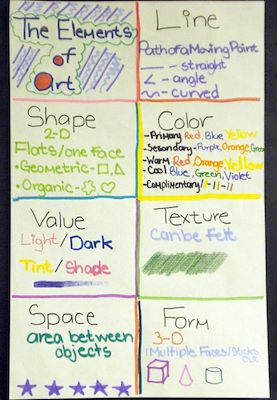 The Elements
of
Art
Line
Path of a Moving Point
- straight
- angle
- curved
Shape
2-D
Flats/one Face
• Geometric -
• Organic -
Color
- Primary Red, Blue Yellow
- Secondary - Purple, Orange, Green
- Warm Red, Orange, Yellow
- Cool Blue, Green, Violet
- Complimentary
Value
Light/Dark
Tint/Shade
Texture
Can be Felt
Space
area between
objects
Form
3-D
(Multiple Faces/Sticks
Out